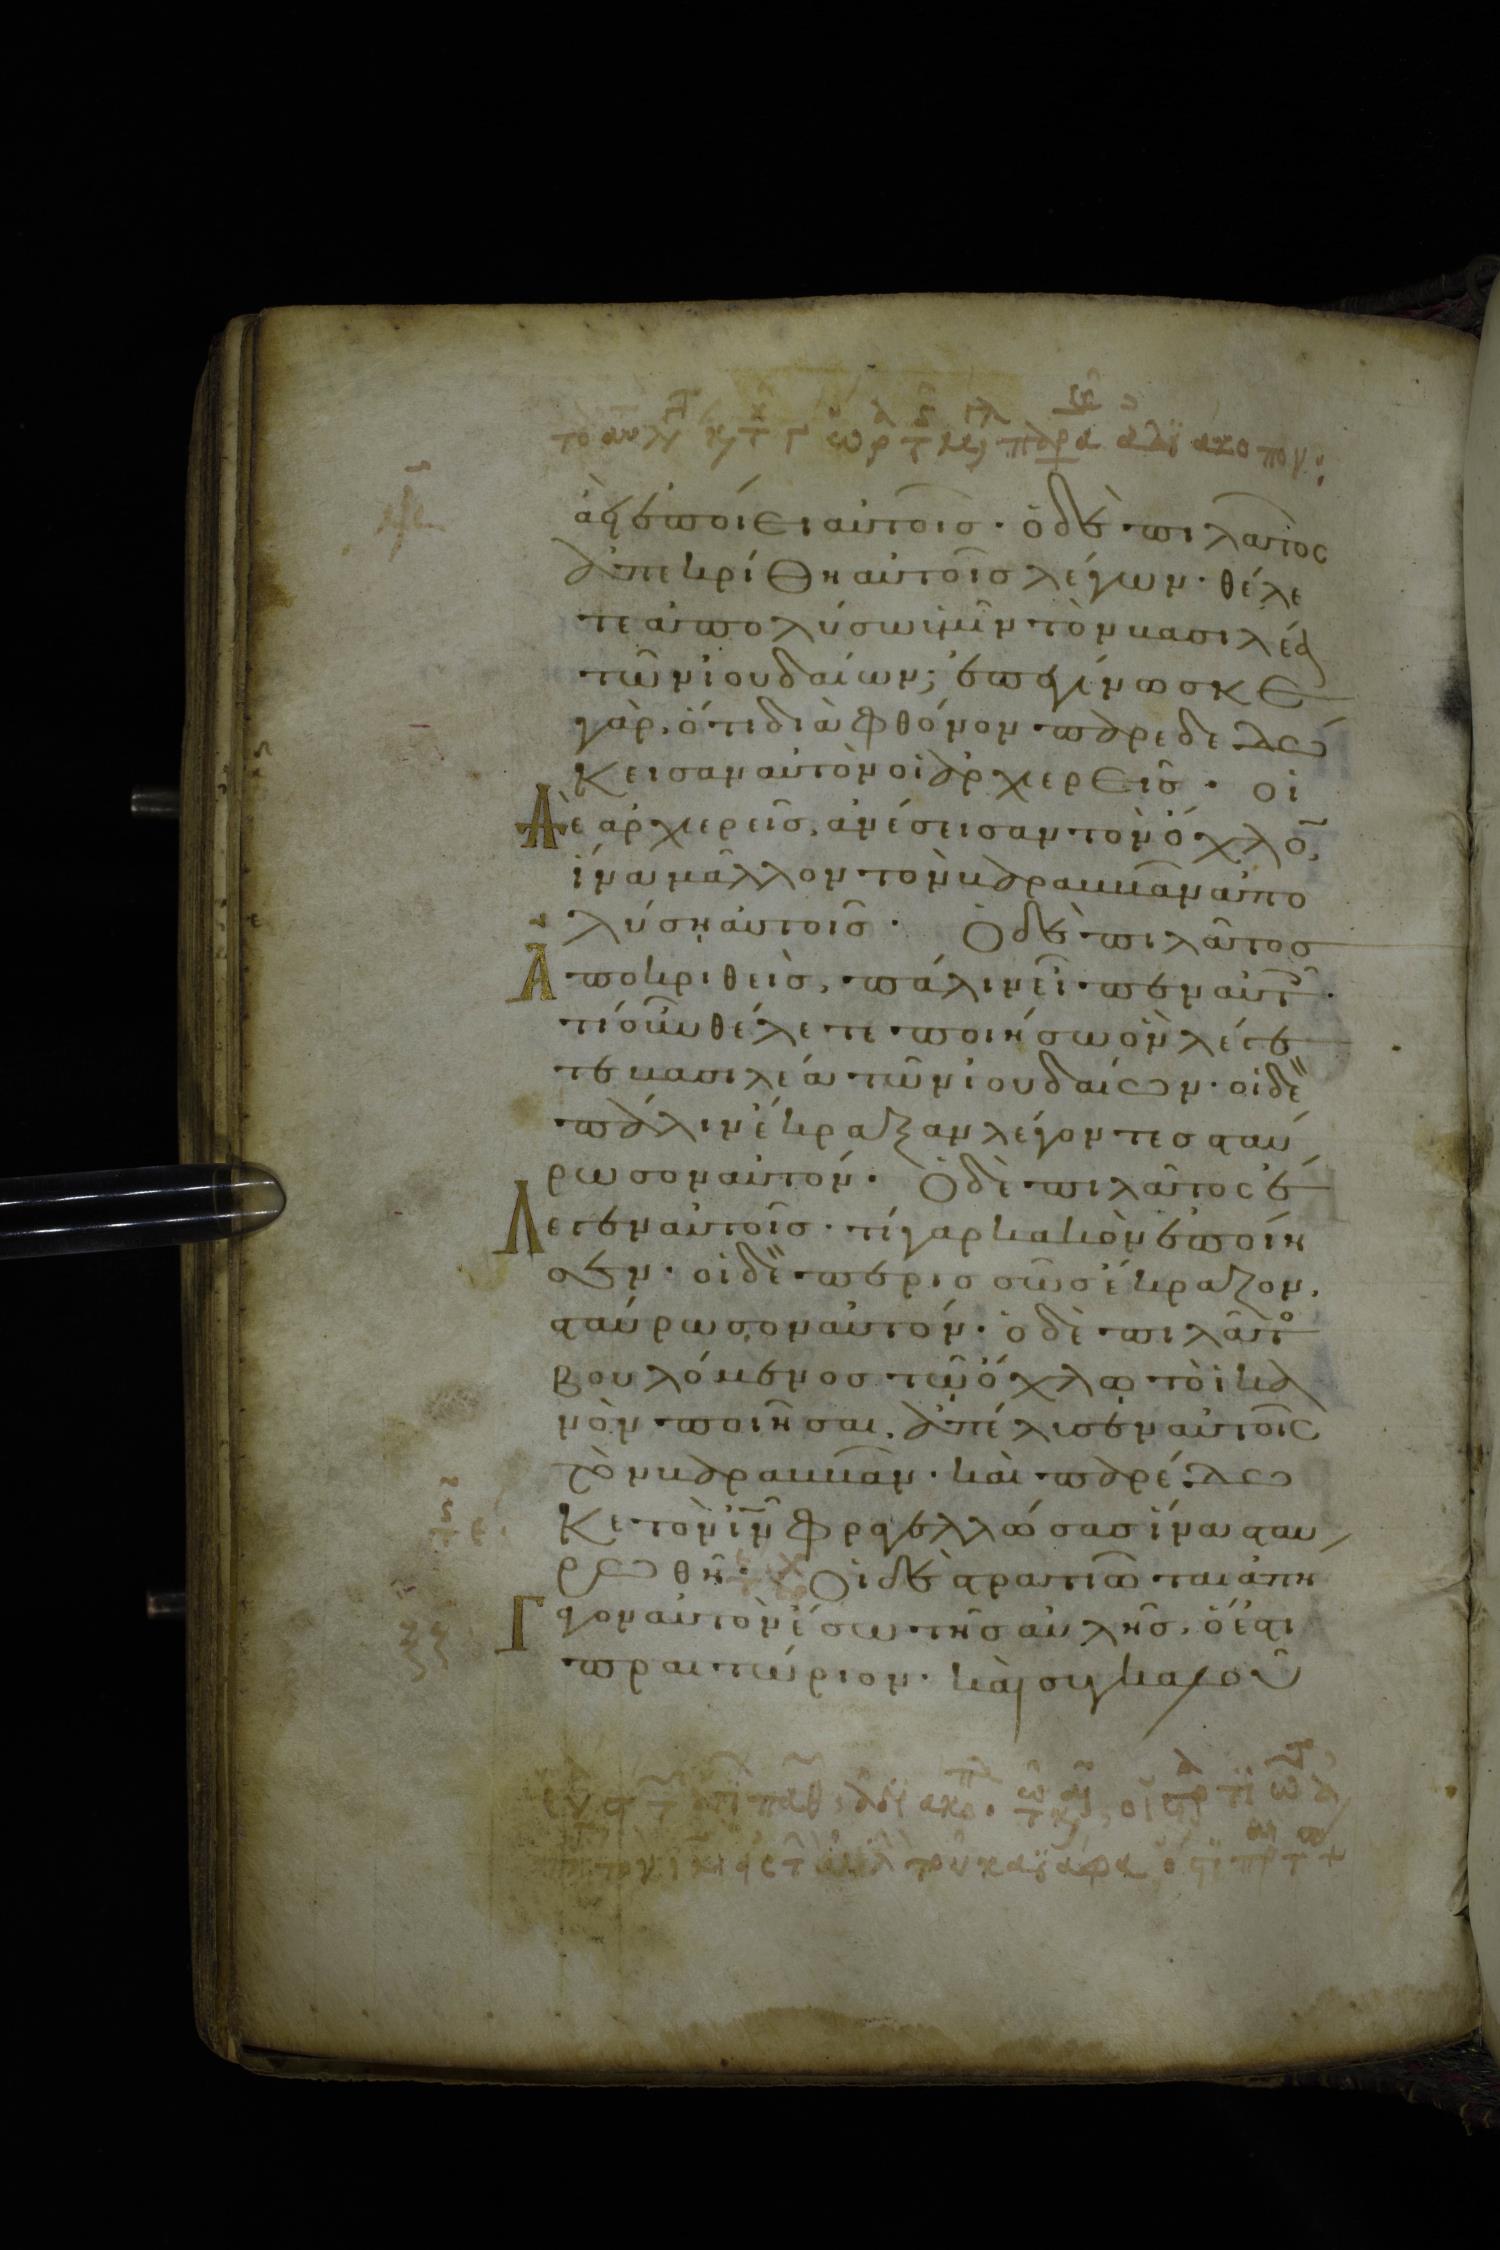 ἀεὶ ἐποίει αὐτοῖς· ὁ δὲ πιλᾶτος
ἀπεκρίθη αὐτοῖς λέγων· θέλε
τε ἀπολύσω ὑμῖν τὸν βασιλέα
τῶν ἰουδαίων; ἐπεγίνωσκε
γὰρ, ὅτι διὰ φθόνον παρεδεδώ
κεισαν αὐτὸν οἱ ἀρχιερεῖς· οἱ
Δὲ ἀρχιερεῖς, ἀνέσεισαν τὸν ὄχλο̅,
ἵνα μᾶλλον τὸν βαραββᾶν ἀπο
λύσῃ αὐτοῖς· Ὁ δὲ πιλᾶτος
Ἀποκριθεὶς, πάλιν εἶπεν αὐτοῖς·
τί οὖν θέλετε ποιήσω ὃν λέγε
τε βασιλέα τῶν ἰουδαίων· οἱ δὲ
πάλιν ἔκραξαν λέγοντες σταύ
ρωσον αὐτόν· Ὁ δὲ πιλᾶτος ἔ
Λεγεν αὐτοῖς· τί γαρ κακὸν ἐποίη
σεν· οἱ δὲ περισσῶς ἔκραζον,
σταύρωσον αὐτόν· ὁ δὲ πιλᾶτο
βουλόμενος τῷ ὄχλῳ τὸ ἱκα
νὸν ποιῆσαι, ἀπέλυσεν αὐτοῖς
τὸν βαραββᾶν· καὶ παρέδω
κε τὸν ι̅ν̅ φραγελλώσας ἵνα σταυ
ρωθῇ· Οἱ δὲ στρατιῶται ἀπή
Γαγον αὐτὸν ἔσω τῆς αὐλῆς, ὅ ἐστι
πραιτώριον· καὶ συγκαλοῦ